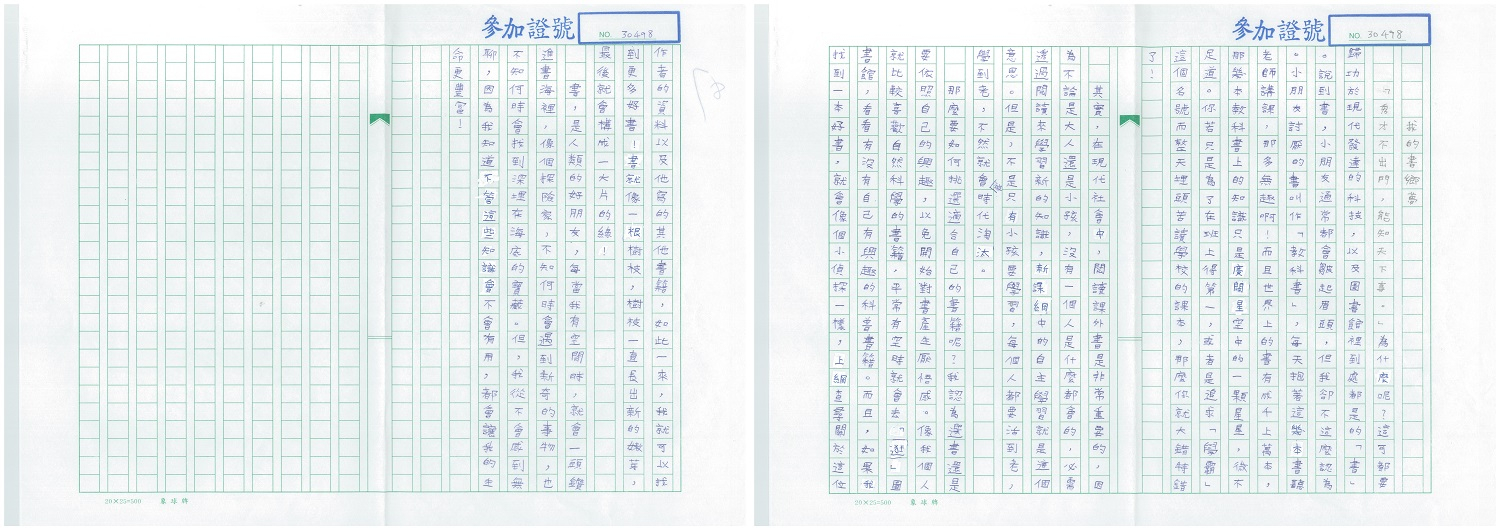 參加證號
NO. 30498
我的書鄉夢
「秀才不出門，能知天下事。」為什麼呢？這可都要
歸功於現代發達的科技，以及圖書館裡到處都是的「書」
。說到書，小朋友通常都會皺起眉頭，但我卻不這麼認為
。小朋友討厭的書叫作「教科書」，每天抱著這幾本書聽
老師講課，那多無趣啊！而且世界上的書有成千上萬本，
那幾本教科書上的知識只是廣闊星空中的一顆星星，微不
足道。你若只是為了在班上得第一，或者是追求「學霸」
這個名號而整天埋頭苦讀學校的課本，那麼你就大錯特錯
了！
其實，在現代社會中，閱讀課外書是非常重要的，因
為不論是大人還是小孩，沒有一個人是什麼都會的，必需
透過閱讀來學習新的知識，新課綱中的自主學習就是這個
意思。但是，不是只有小孩要學習，每個人都要活到老，
學到老，不然就會被時代淘汰。
那麼要如何挑選適合自己的書籍呢？我認為選書還是
要依照自己的興趣，以免開始對書產生厭倦感。像我個人
就比較喜歡自然科學的書籍，平常有空時就會去「逛」圖
書館，看看有沒有自己有興趣的科普書籍。而且，如果我
找到一本好書，就會像個小偵探一樣，上網查學關於這位
20×25=500 象球牌
參加證號
NO. 30498
作者的資料以及他寫的其他書籍，如此一來，我就可以找
到更多好書！書就像一根樹枝，樹枝一直長出新的嫩芽，
最後就會構成一大片的綠！
書，是人類的好朋友，每當我有空閒時，就會一頭鑽
進書海裡，像個探險家，不知何時會遇到新奇的事物，也
不知何時會找到深埋在海底的寶藏。但，我從不會感到無
聊，因為我知道不管這些知識會不會有用，都會讓我的生
命更豐富！
20×25=500 象球牌